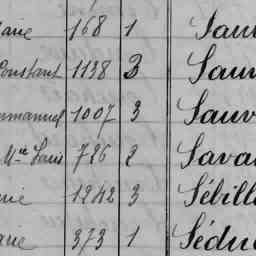 arie 168 1 Sau
Constant 1138 3 Sauv
mmanuel 1007 3 Sauv
Mce Louis 726 2 Sava
rie 1242 3 Sébill
arie 373 1 Sédu